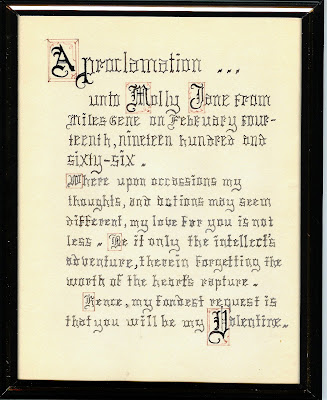 A proclamation ...
unto Molly Jane from
Miles Gene on February four-
teenth, nineteen hundred and
sixty-six.
Where upon occassions my
thoughts, and actions may seem
different, my love for you is not
less. Be it only the intellect's
adventure, therein forgetting the
worth of the heart's rapture.
Hence, my fondest request is
that you will be my Valentine.